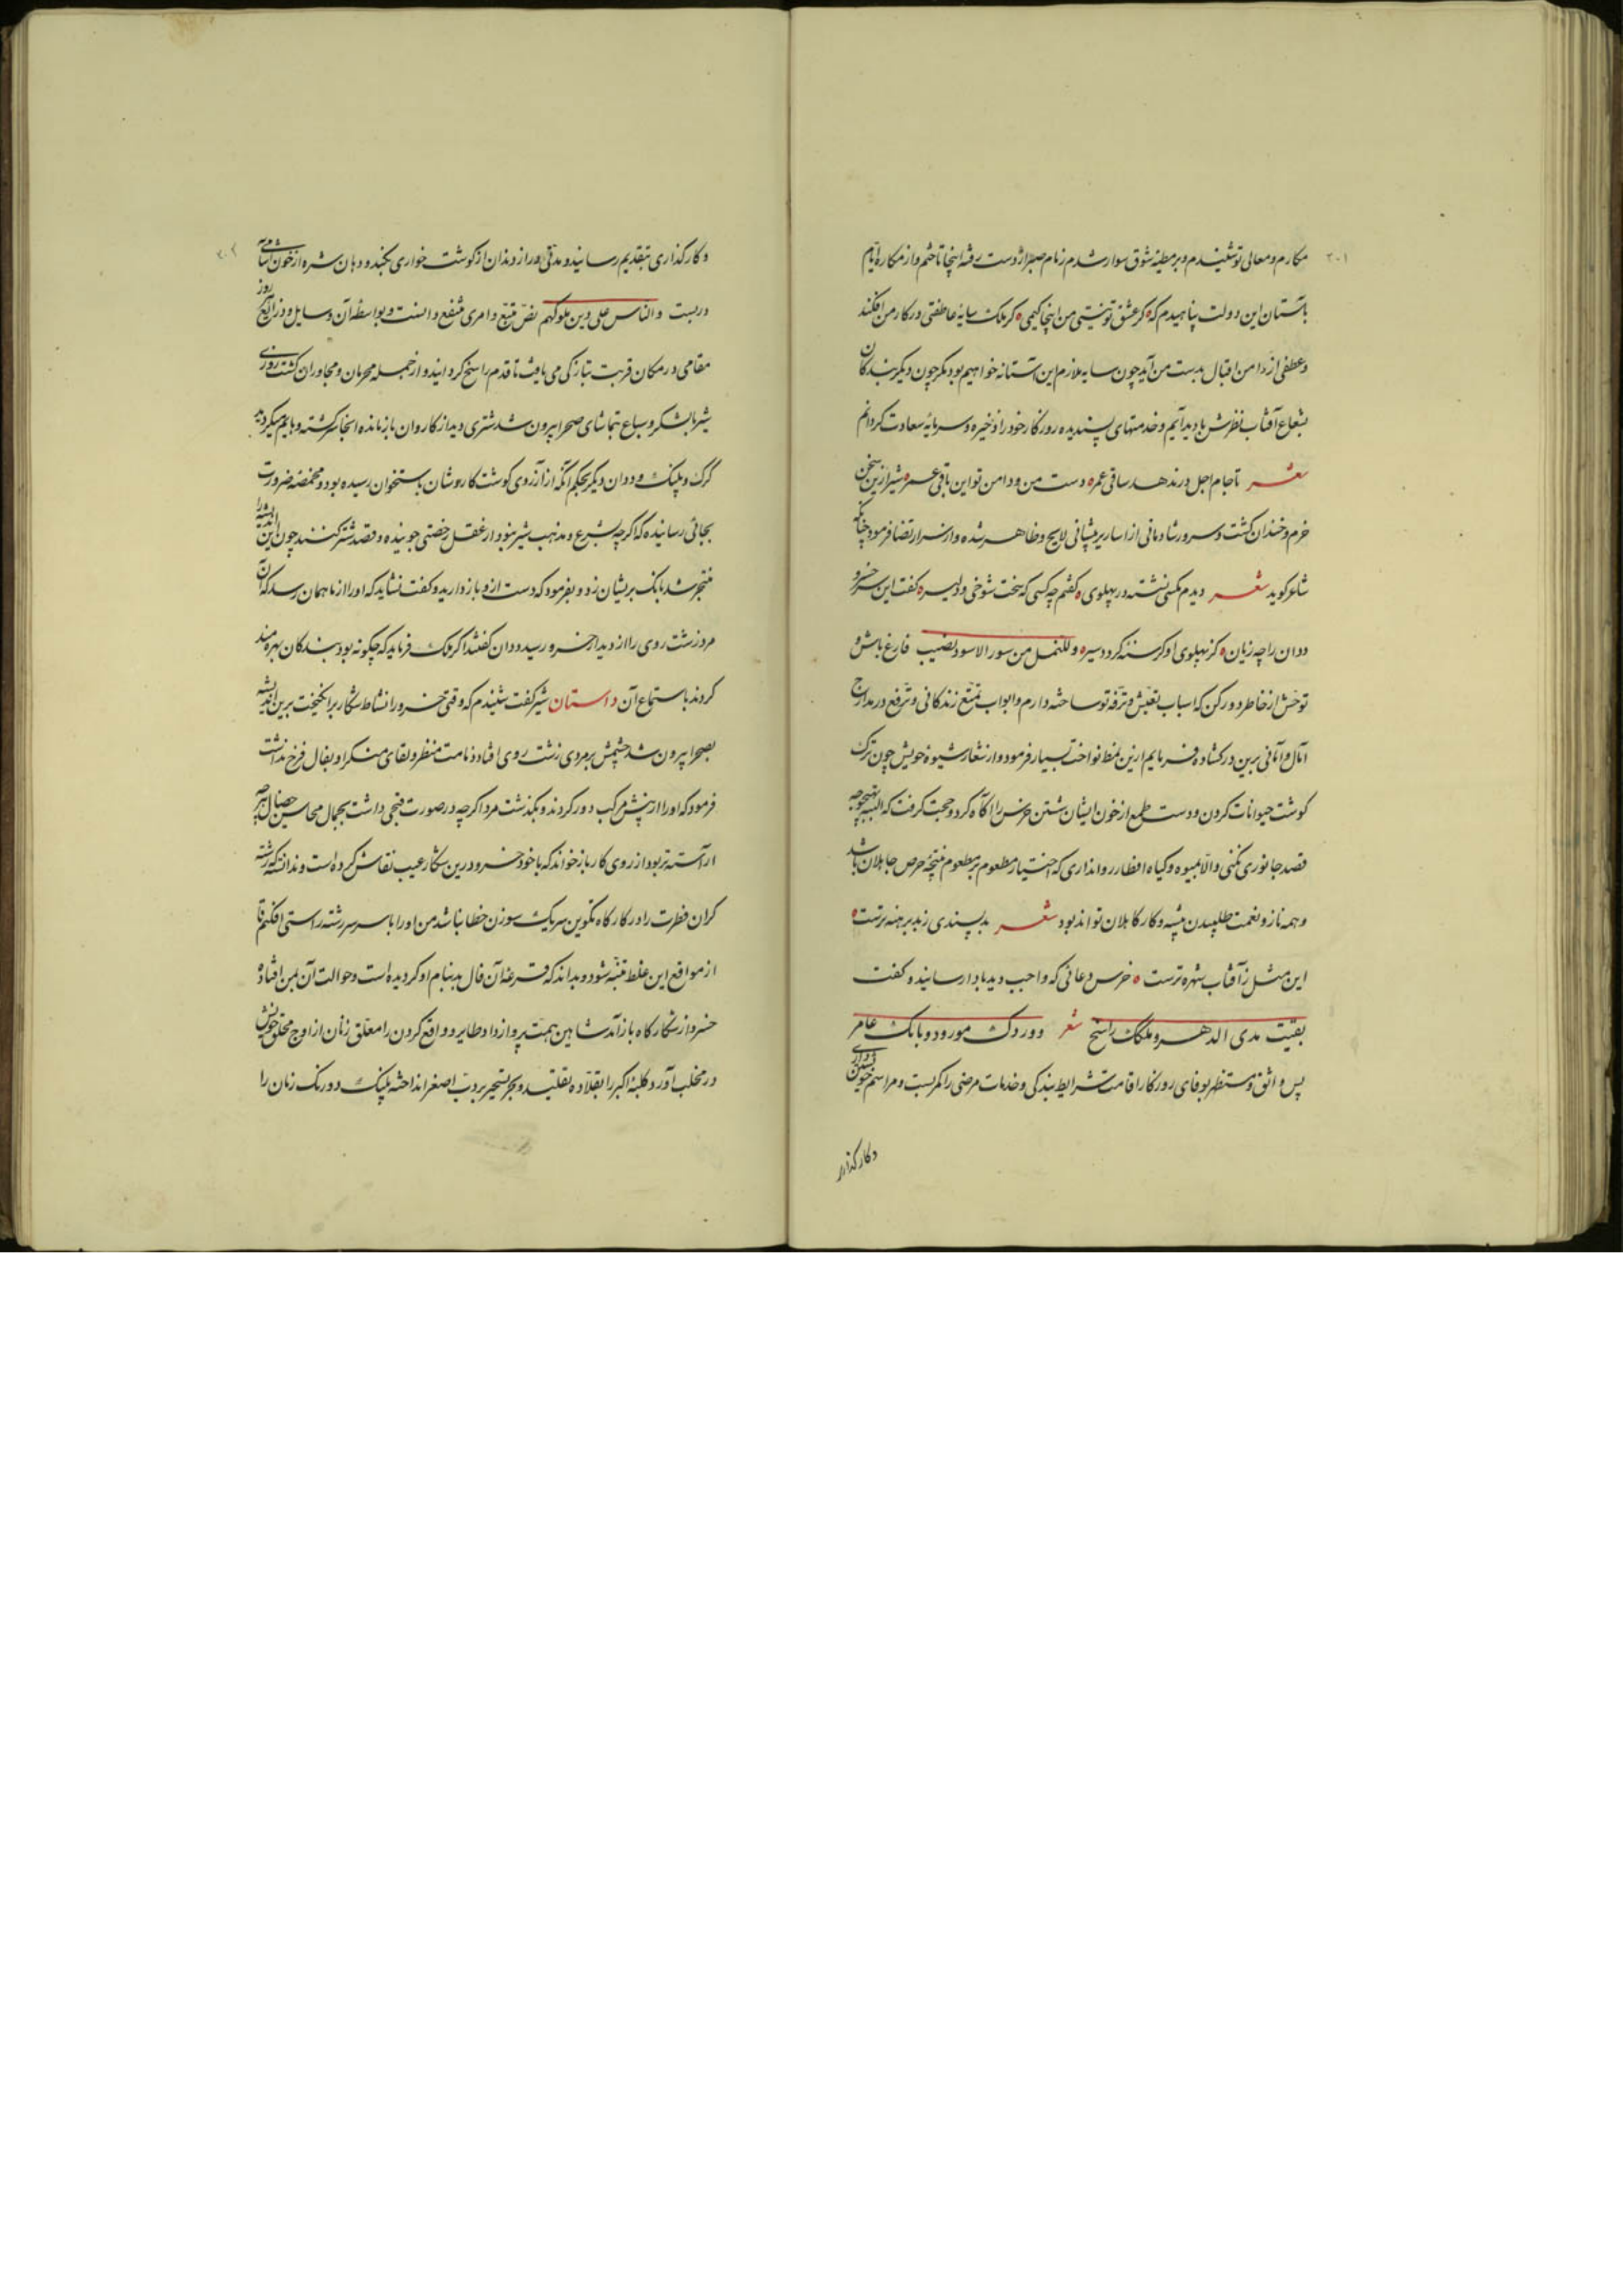 ۲۰۱
مکارم و معالی تو شنیدم و بر مطیهٔ شوق سوار شدم زمام صبر از دست رفته اینجا تاختم و از مکاره ایام
بآستان این دولت پناهیدم که کر عشق تو نیستی من اینجا کیمی کر ملک سایهٔ عاطفتی در کار من افکند
و عطفی از دامن اقبال بدست من آید چون سایه ملازم این آستانه خواهیم بود مکر چون دیکر بندکان
بشعاع آفتاب نظرش با دید آیم و خدمتهای پسندیده روزکار خود را ذخیره و سرمایهٔ سعادت کردانم
شعر تا جام اجل در ندهد ساقی عمر دست من و دامن تو این باقی عمر شیر ازین سخن
خرم و خندان کشت و سرور شادمانی از اساریر پیشانی لایح و ظاهر شده و از سر ارتضا فرمود چنانکه
شاعر کوید شعر دیدم مکسی نشسته در پهلوی کفتم چه کسی که سخت شوخی و دلیر کفت این سر خسرو
ددان را چه زیان کز پهلوی او کرسنهٔ کردد سیر و للنمل من سور الاسود نصیب فارغ باش و
توحش از خاطر دور کن که اسباب تعیش و ترفه تو ساخته دارم و ابواب تمتع زندکانی و ترفع در مدارج
آمال و امانی برین در کشاده فرمایم ازین نمط نواخت بسیار فرمود و از شعار شیوه خویش چون ترک
کوشت حیوانات کردن و دست طمع از خون ایشان شستن خرس را آکاه کرد و حجت کرفت که البته بهیچ وجه
قصد جانوری نکنی و الا بمیوه و کیاه افطار روا نداری که اختیار مطعوم بر مطعوم نتیجهٔ حرص جاهلان باشد
و همه ناز و نعمت طلبیدن پیشه و کار کاهلان تواند بود شعر بد پسندی ز بد برهنه ترست
این مثل ز آفتاب شهره ترست خرس دعائی که واجب دید بادا رسانید و کفت
بقیت مدی الدهر و ملکک راسخ شعر و وردک مورود و بابک عامر
پس واثق و مستظهر بوفای روزکار اقامت شرایط بندکی و خدمات مرضی را کمر بست و مراسم خویشتن داری
و کارکذار
۲۰۲
و کارکذاری بتقدیم رسانید و مدتی دراز دندان از کوشت خواری بکند و دهان شره از خون آشامی
در بست و الناس علی دین ملوکهم نص متبع و امری منتفع دانست و بواسطهٔ آن وسایل و ذرایع روز
مقامی در مکان قربت بتازکی می یافت تا قدم راسخ کردانید و از جمله محرمان و مجاوران کشت روزی
شیر با لشکر و سباع بتماشای صحرا بیرون شد شتری دید از کاروان باز مانده آنجا سرکشته و هایم میکردید
کرک و پلنک و ددان دیکر بحکم آنکه از آرزوی کوشت کاردشان باستخوان رسیده بود و مخمصه ضرورت
بجائی رسانیده که اکرچه بشرع و مذهب شیر نبود از عقل رخصتی جویند و قصد شتر کنند چون این اندیشه را
متنجز شد بانک بریشان زد و بفرمود که دست ازو باز دارید و کفت نشاید که او را از ما همان رسد که آن
مرد زشت روی را از دیدار خسرو رسید ددان کفتند اکر ملک فرماید که چکونه بود بندکان بهره مند
کردند باستماع آن داستان شیر کفت شنیدم که وقتی خسرو را نشاط شکار برانکیخت برین اندیشه
بصحرا بیرون شد چشمش بر مردی زشت روی افتاد دمامت منظر و لقای منکر او بفال فرخ نداشت
فرمود که او را از پیش مرکب دور کردند و بکذشت مرد اکرچه در صورت قبحی داشت بجمال محاسن خصال هر چه
آراسته تر بود از روی کار باز خواند که با خود خسرو درین شکار عیب نقاش کرده است و ندانسته که رشته
کران فطرت را در کارکاه تکوین سر یک سوزن خطا نباشد من او را با سر سررشته راستی افکنم تا
از مواقع این غلط متنبه شود و بداند که قرعه آن فال بد بنام او کردیده است و حوالت آن بمن افتاده
خسرو از شکارکاه باز آمد شاهین همت پرواز داد و طایر و واقع کردن را معلق زنان از اوج محلق خویش
در مخلب آورد و کلبهٔ اکبر را بقلاده تقلید و بجر تسخیر بر دب اصغر انداخته پلنک دو رنک زمان را